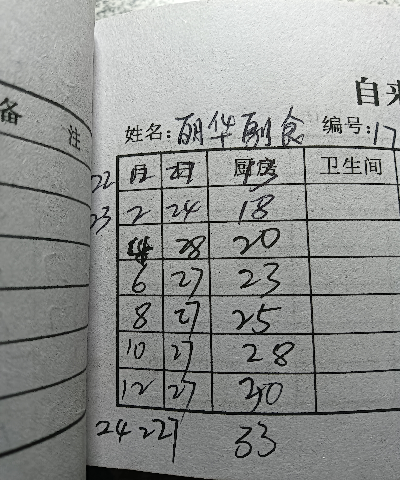 备注
自来
姓名: 丽华副食 编号: 17
22 月 日 厨房 卫生间
23 2 24 18
4 28 20
6 27 23
8 27 25
10 27 28
12 27 30
24 2 27 33